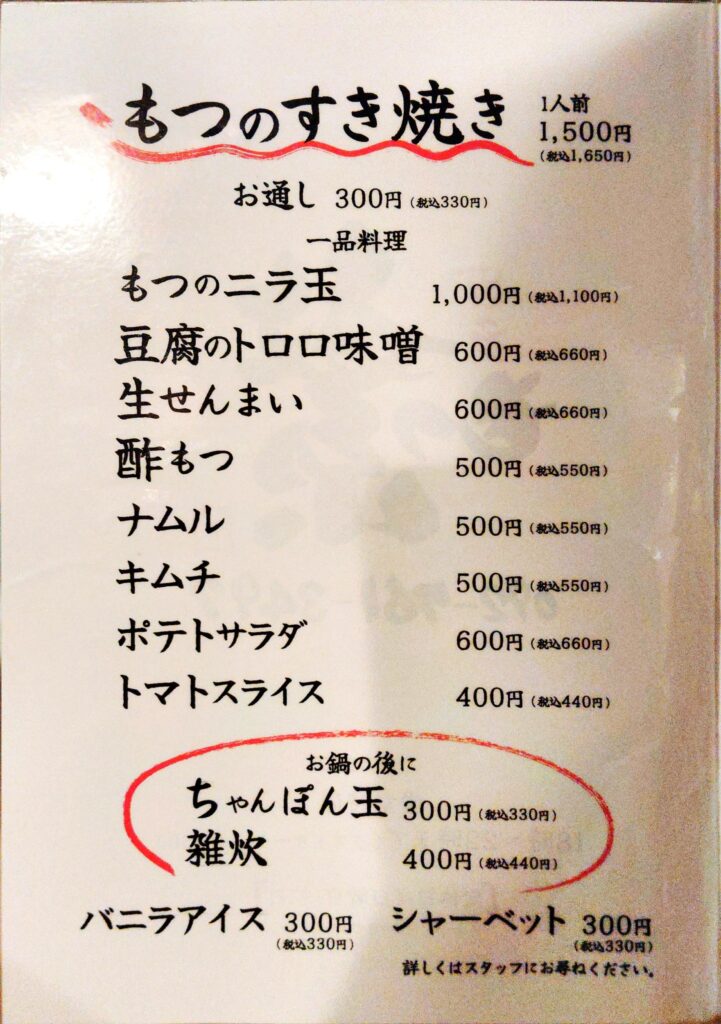 もつのすき焼き 1人前
1,500円
(税込1,650円)
お通し 300円(税込330円)
一品料理
もつのニラ玉 1,000円(税込1,100円)
豆腐のトロロ味噌 600円(税込660円)
生せんまい 600円(税込660円)
酢もつ 500円(税込550円)
ナムル 500円(税込550円)
キムチ 500円(税込550円)
ポテトサラダ 600円(税込660円)
トマトスライス 400円(税込440円)
お鍋の後に
ちゃんぽん玉 300円(税込330円)
雑炊 400円(税込440円)
バニラアイス 300円 シャーベット 300円
(税込330円) (税込330円)
詳しくはスタッフにお尋ねください。